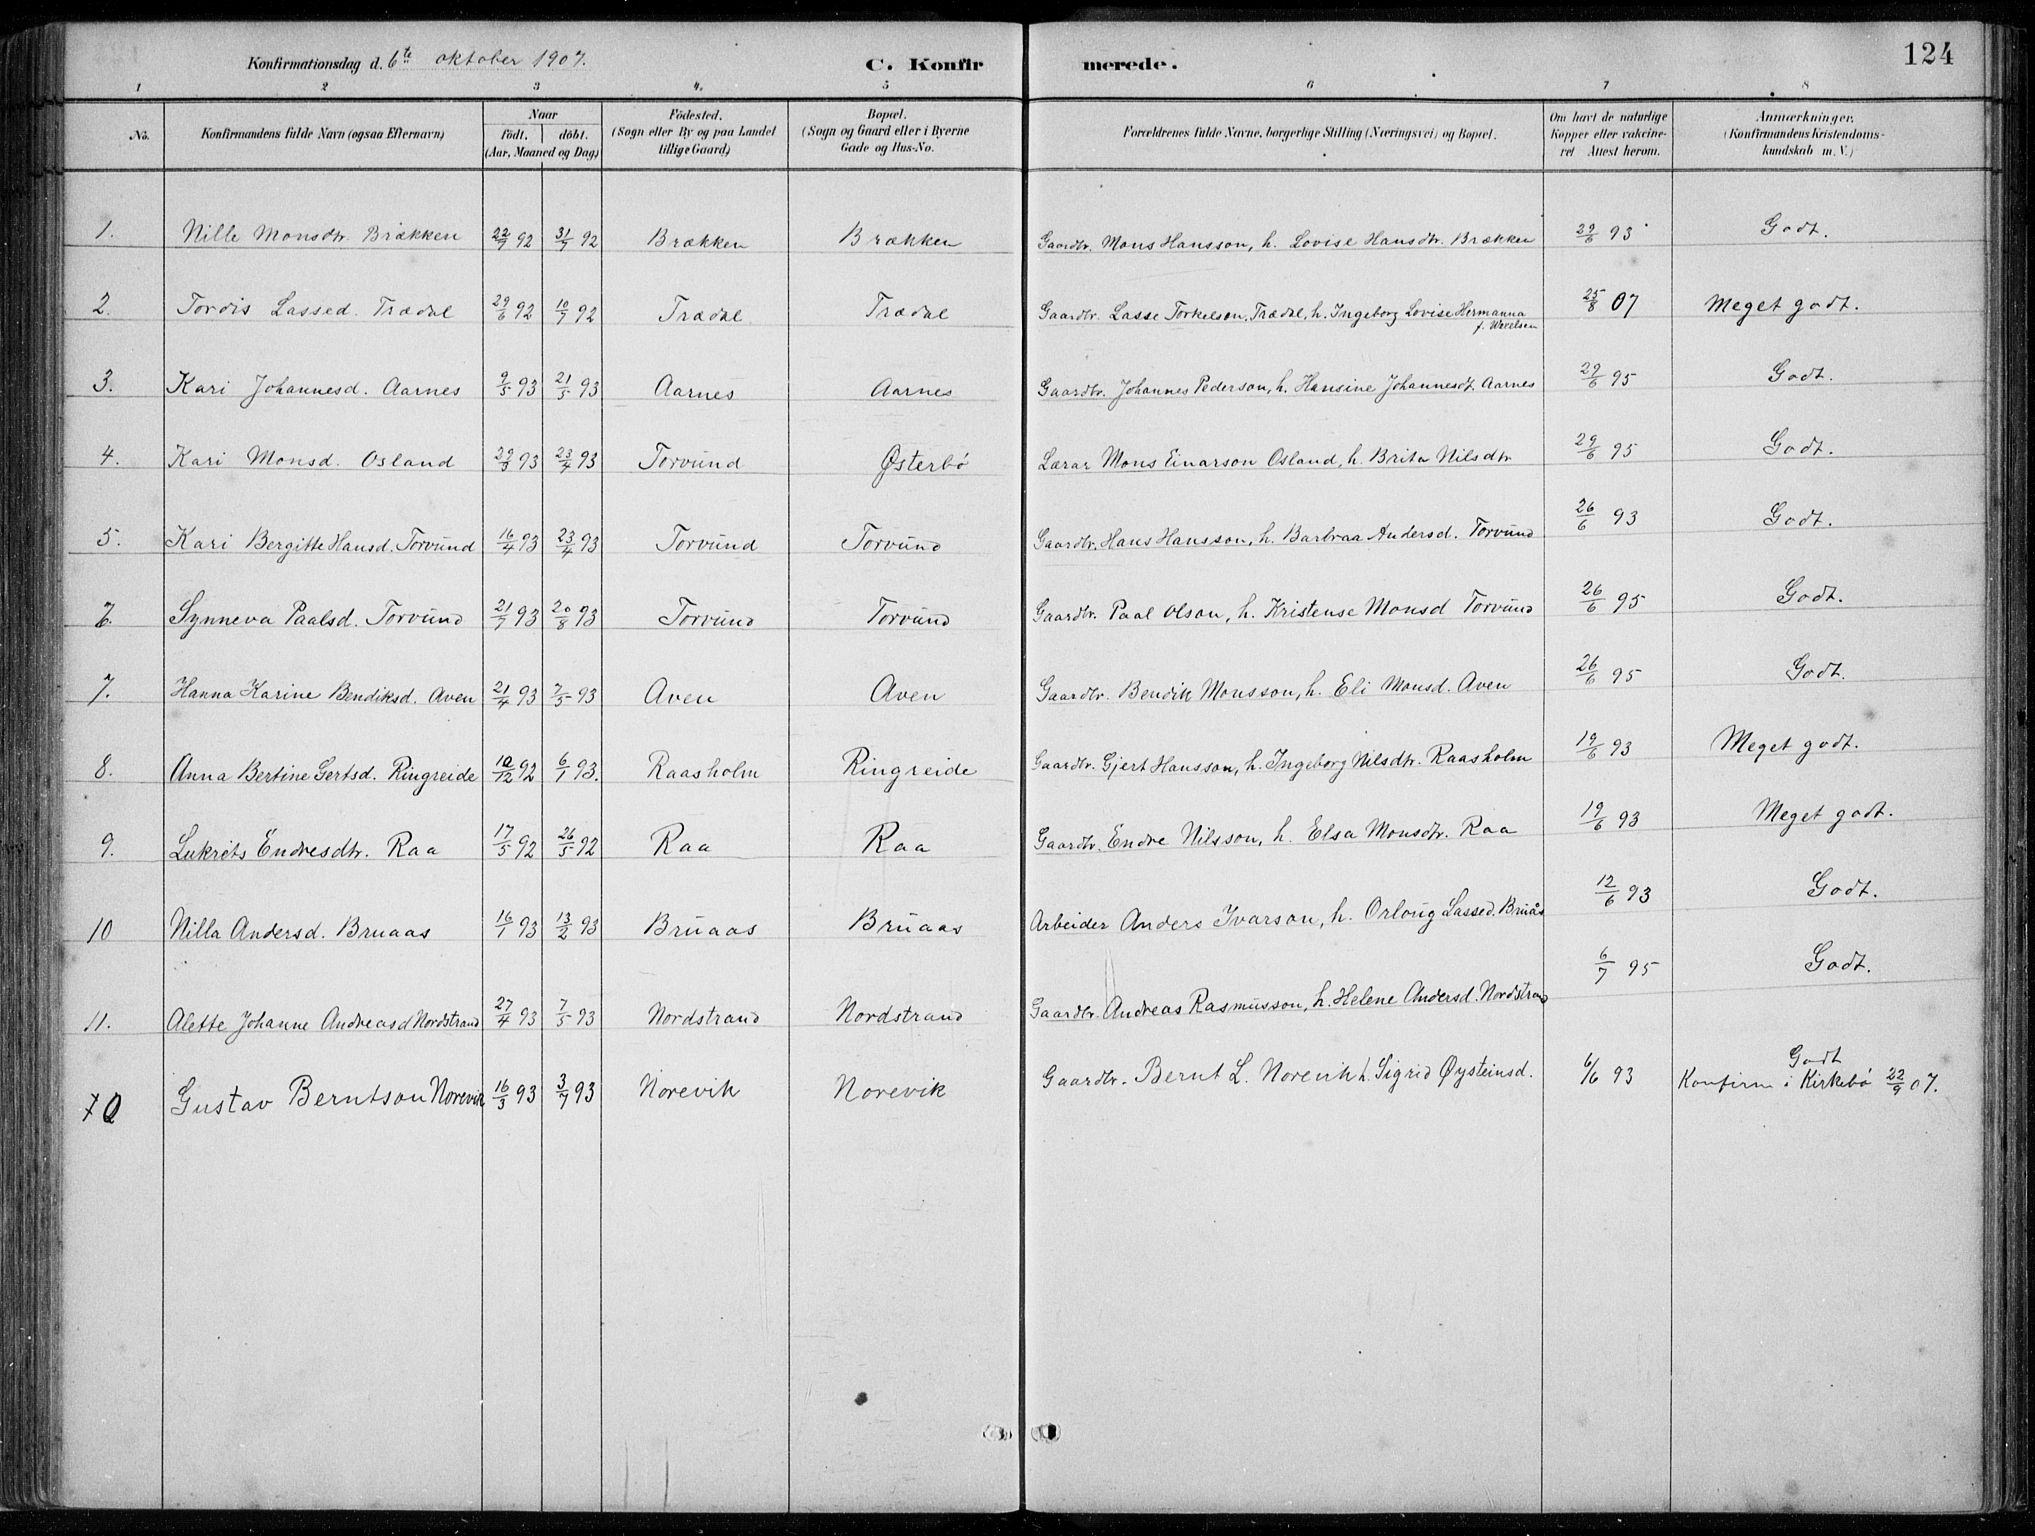 Konfirmationsdag d. 6te oktober 1907.
C. Konfirmerede.
124
1 2 3 4. 5 6 7 8
No. Konfirmandens fulde Navn (ogsaa Efternavn) Naar født. døbt. (Aar, Maaned og Dag) Fødested. (Sogn eller By og paa Landet tillige Gaard) Bopæl. (Sogn og Gaard eller i Byerne Gade og Hus-No. Forældrenes fulde Navne, borgerlige Stilling (Næringsvei) og Bopæl. Om havt de naturlige Kopper eller vakcineret Attest herom. Anmærkninger. (Konfirmandens Kristendomskundskab m. V.)
1. Nille Monsdtr. Brækken 22/7 92 31/7 92 Brækken Brækken Gaardbr. Mons Hansson, h. Lovise Hansdtr. Brækken 29/6 93 Godt.
2. Tordis Lassed. Trædal 29/6 92 10/7 92 Trædal Trædal Gaardbr. Lasse Torkelson, Trædal, h. Ingeborg Lovise Hermanna 25/8 07 Meget godt.
3. Kari Johannesd. Aarnes 9/5 93 21/5 93 Aarnes Aarnes Gaardbr. Johannes Pederson, h. Hansine Johannesdt. Aarnes 29/6 95 Godt.
4. Kari Monsd. Osland 29/3 93 23/4 93 Torvund Østerbø Lærar Mons Einarson Osland, h. Brita Nilsdtr 29/6 95 Godt.
5. Kari Bergitte Hansd. Torvund 16/4 93 23/4 93 Torvund Torvund Gaardbr. Hans Hansson, h. Barbraa Andersd. Torvund 26/6 93 Godt.
6. Synneva Paalsd. Torvund 21/7 93 20/8 93 Torvund Torvund Gaardbr. Paal Olson, h. Kristense Monsd Torvund 26/6 95 Godt.
7. Hanna Karine Bendiksd. Aven 21/4 93 7/5 93 Aven Aven Gaardbr. Bendik Monsson, h. Eli Monsd. Aven 26/6 95 Godt.
8. Anna Bertine Gertsd. Ringreide 10/12 92 6/1 93. Raasholm Ringreide Gaardbr. Gjert Hansson, h. Ingeborg Nilsdtr. Raasholm 19/6 93 Meget godt.
9. Lukrets Endresdtr. Raa 17/5 92 26/5 92 Raa Raa Gaardbr. Endre Nilsson, h. Elsa Monsdtr. Raa 19/6 93 Meget godt.
10 Nilla Andersd. Bruaas 16/1 93 13/2 93 Bruaas Bruaas Arbeider Anders Ivarson, h. Orloug Lassed. Bruås 12/6 93 Godt.
11. Alette Johanne Andreasd Nordstrand 27/4 93 7/5 93 Nordstrand Nordstrand Gaardbr. Andreas Rasmusson, h. Helene Andersd. Nordstrand 6/7 95 Godt.
Gustav Berntson Norevik 16/3 93 3/7 93 Norevik Norevik Gaardbr. Bernt L. Norevik h. Sigrid Øysteinsd. 6/6 93 Godt Konfirm i Kirkebø 22/9 07.